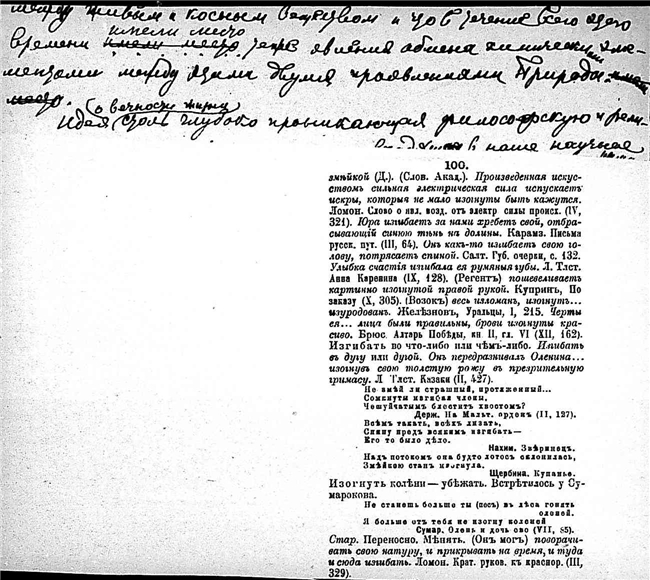 между живым и косным веществом и что в течение всего этого
имели место
времени имели место те же явления обмена химическими эле-
ментами между этими двумя проявлениями Природы.
место.
(о вечности жизни)
Идея столь глубоко проникающая философскую и рели-
в наше научное
100.
змѣйкой (Д.). (Слов. Акад.). Произведенная искус-
ствомъ сильная электрическая сила испускаетъ
искры, которыя не мало изогнуты быть кажутся.
Ломон. Слово о явл. возд. отъ электр силы происх. (IV,
321). Юра изгибаетъ за нами хребетъ свой, отбра-
сывающій синюю тѣнь на долины. Карамз. Письма
русск. пут. (III, 64). Онъ какъ-то изгибаетъ свою го-
лову, потрясаетъ спиной. Салт. Губ. очерки, с. 132.
Улыбка счастія изгибала ея румяныя губы. Л. Тлст.
Анна Каренина (IX, 128). (Регентъ) пошевеливаетъ
картинно изогнутой правой рукой. Купринъ, По
заказу (X, 305). (Возокъ) весь изломанъ, изогнутъ...
изуродованъ. Желѣзновъ, Уральцы, I, 215. Черты
ея... лица были правильны, брови изогнуты кра-
сиво. Брюс. Алтарь Побѣды, кн II, гл. VI (XII, 162).
Изгибать во что-либо или чѣмъ-либо. Изгибать
въ дугу или дугой. Онъ передразнивалъ Оленина...
изогнувъ свою толстую рожу въ презрительную
гримасу. Л Тлст. Казаки (II, 427).
Не змѣй ли страшный, протяженный...
Сомкнути изгибая члены,
Чешуйчатымъ блеститъ хвостомъ?
Держ. На Мальт. орденъ (II, 127).
Всѣмъ такать, всѣхъ лизать,
Спину предъ всякимъ изгибать—
Его то было дѣло.
Нахим. Звѣринецъ.
Надъ потокомъ она будто лотосъ склонилась,
Змѣйкою станъ изогнула.
Щербина. Купанье.
Изогнуть колѣни — убѣжать. Встрѣтилось у Су-
марокова.
Не станешь больше ты (песъ) въ лѣса гонять
оленей.
Я больше отъ тебя не изогну коленей
Сумар. Олень и дочь ево (VII, 85).
Стар. Переносно. Мѣнять. (Онъ могъ) поворачи-
вать свою натуру, и прикрывать на время, и туда
и сюда изгибать. Ломон. Крат. руков. къ краснор. (III,
329).